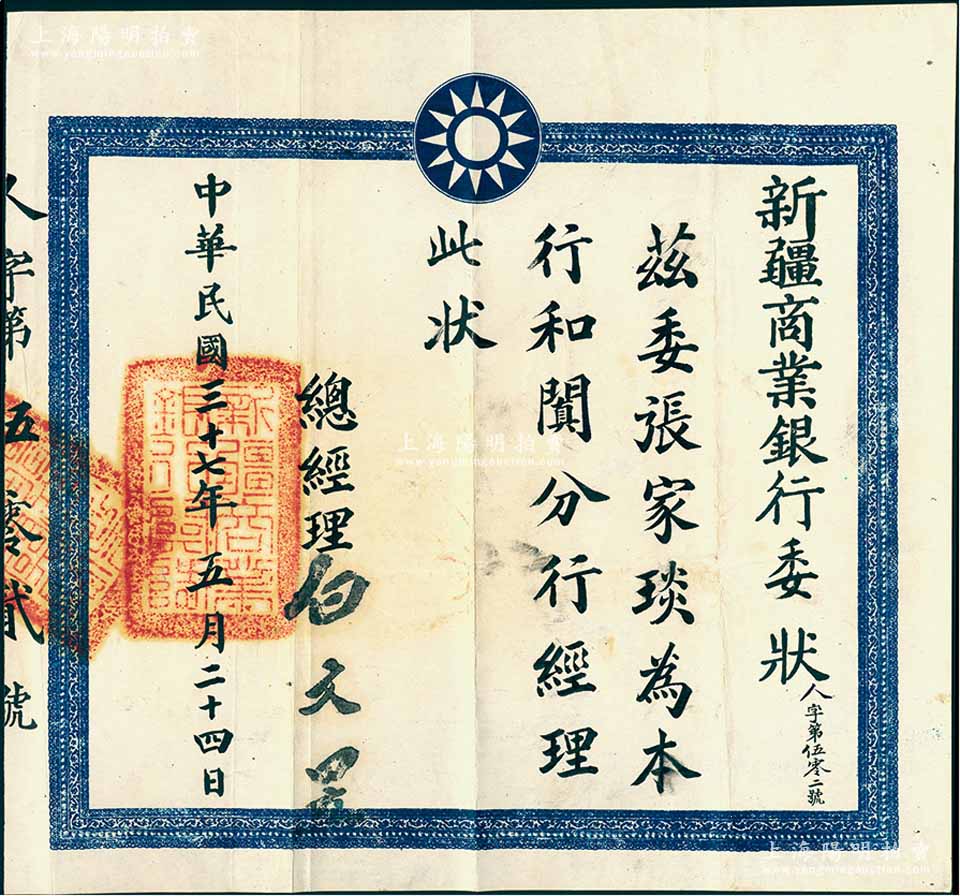 新疆商業銀行委狀
人字第伍零二號
茲委張家琰為本
行和闐分行經理
此狀
總經理白文昱
中華民國三十七年五月二十四日
人字第伍零貳號
上海陽明拍賣
www.yangmingauction.com
上海陽明拍賣
www.yangmingauction.com
上海陽明拍賣
www.yangmingauction.com